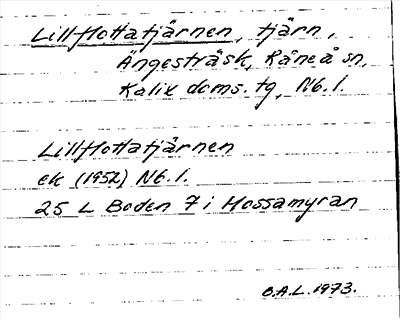 Lillflottatjärnen, tjärn,
Ängesträsk, Råneå sn,
Kalix doms. tg, Nb. l.
Lillflottatjärnen
ek (1952) Nb. l.
25 L Boden 7 i Hossamyran
O.A.L. 1973.